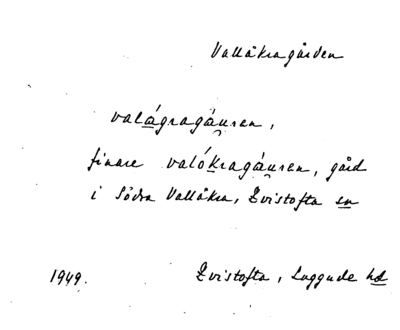 Vallåkragården
valágragáuren,
finare valókragáuren, gård
i Södra Vallåkra, Kvistofta sn
1949. Kvistofta, Luggude hd